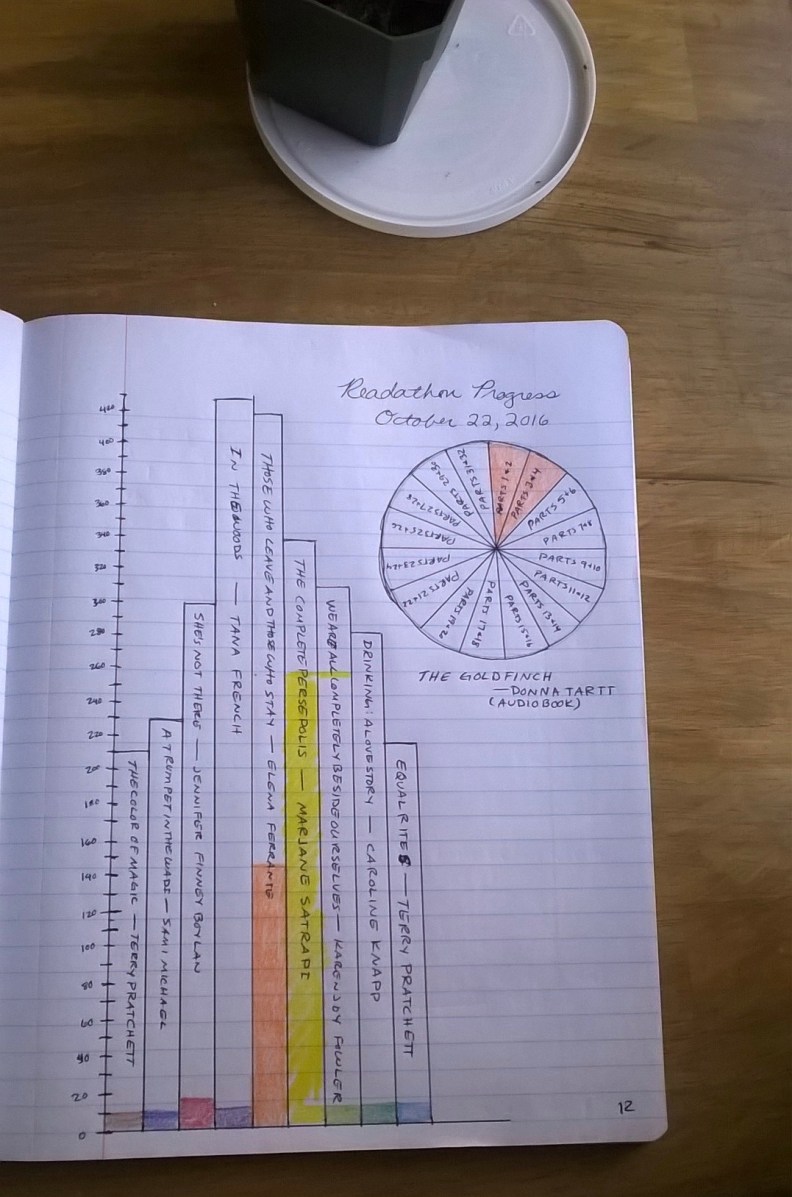 Readathon Progress
October 22, 2016
PARTS 1+2
PARTS 3+4
PARTS 5+6
PARTS 7+8
PARTS 9+10
PARTS 11+12
PARTS 13+14
PARTS 15+16
PARTS 17+18
PARTS 21+22
PARTS 23+24
PARTS 25+26
PARTS 27+28
PARTS 31+32
THE GOLDFINCH
—DONNA TARTT
(AUDIOBOOK)
300
280
260
240
220
200
180
160
140
120
100
80
60
40
20
0
THE COLOR OF MAGIC — TERRY PRATCHETT
A TRUMPET IN THE WADI — SAMI MICHAEL
SHE'S NOT THERE — JENNIFER FINNEY BOYLAN
IN THE WOODS — TANA FRENCH
THOSE WHO LEAVE AND THOSE WHO STAY — ELENA FERRANTE
THE COMPLETE PERSEPOLIS — MARJANE SATRAPI
WE ARE ALL COMPLETELY BESIDE OURSELVES — KAREN JOY FOWLER
DRINKING: A LOVE STORY — CAROLINE KNAPP
EQUAL RITES — TERRY PRATCHETT
12